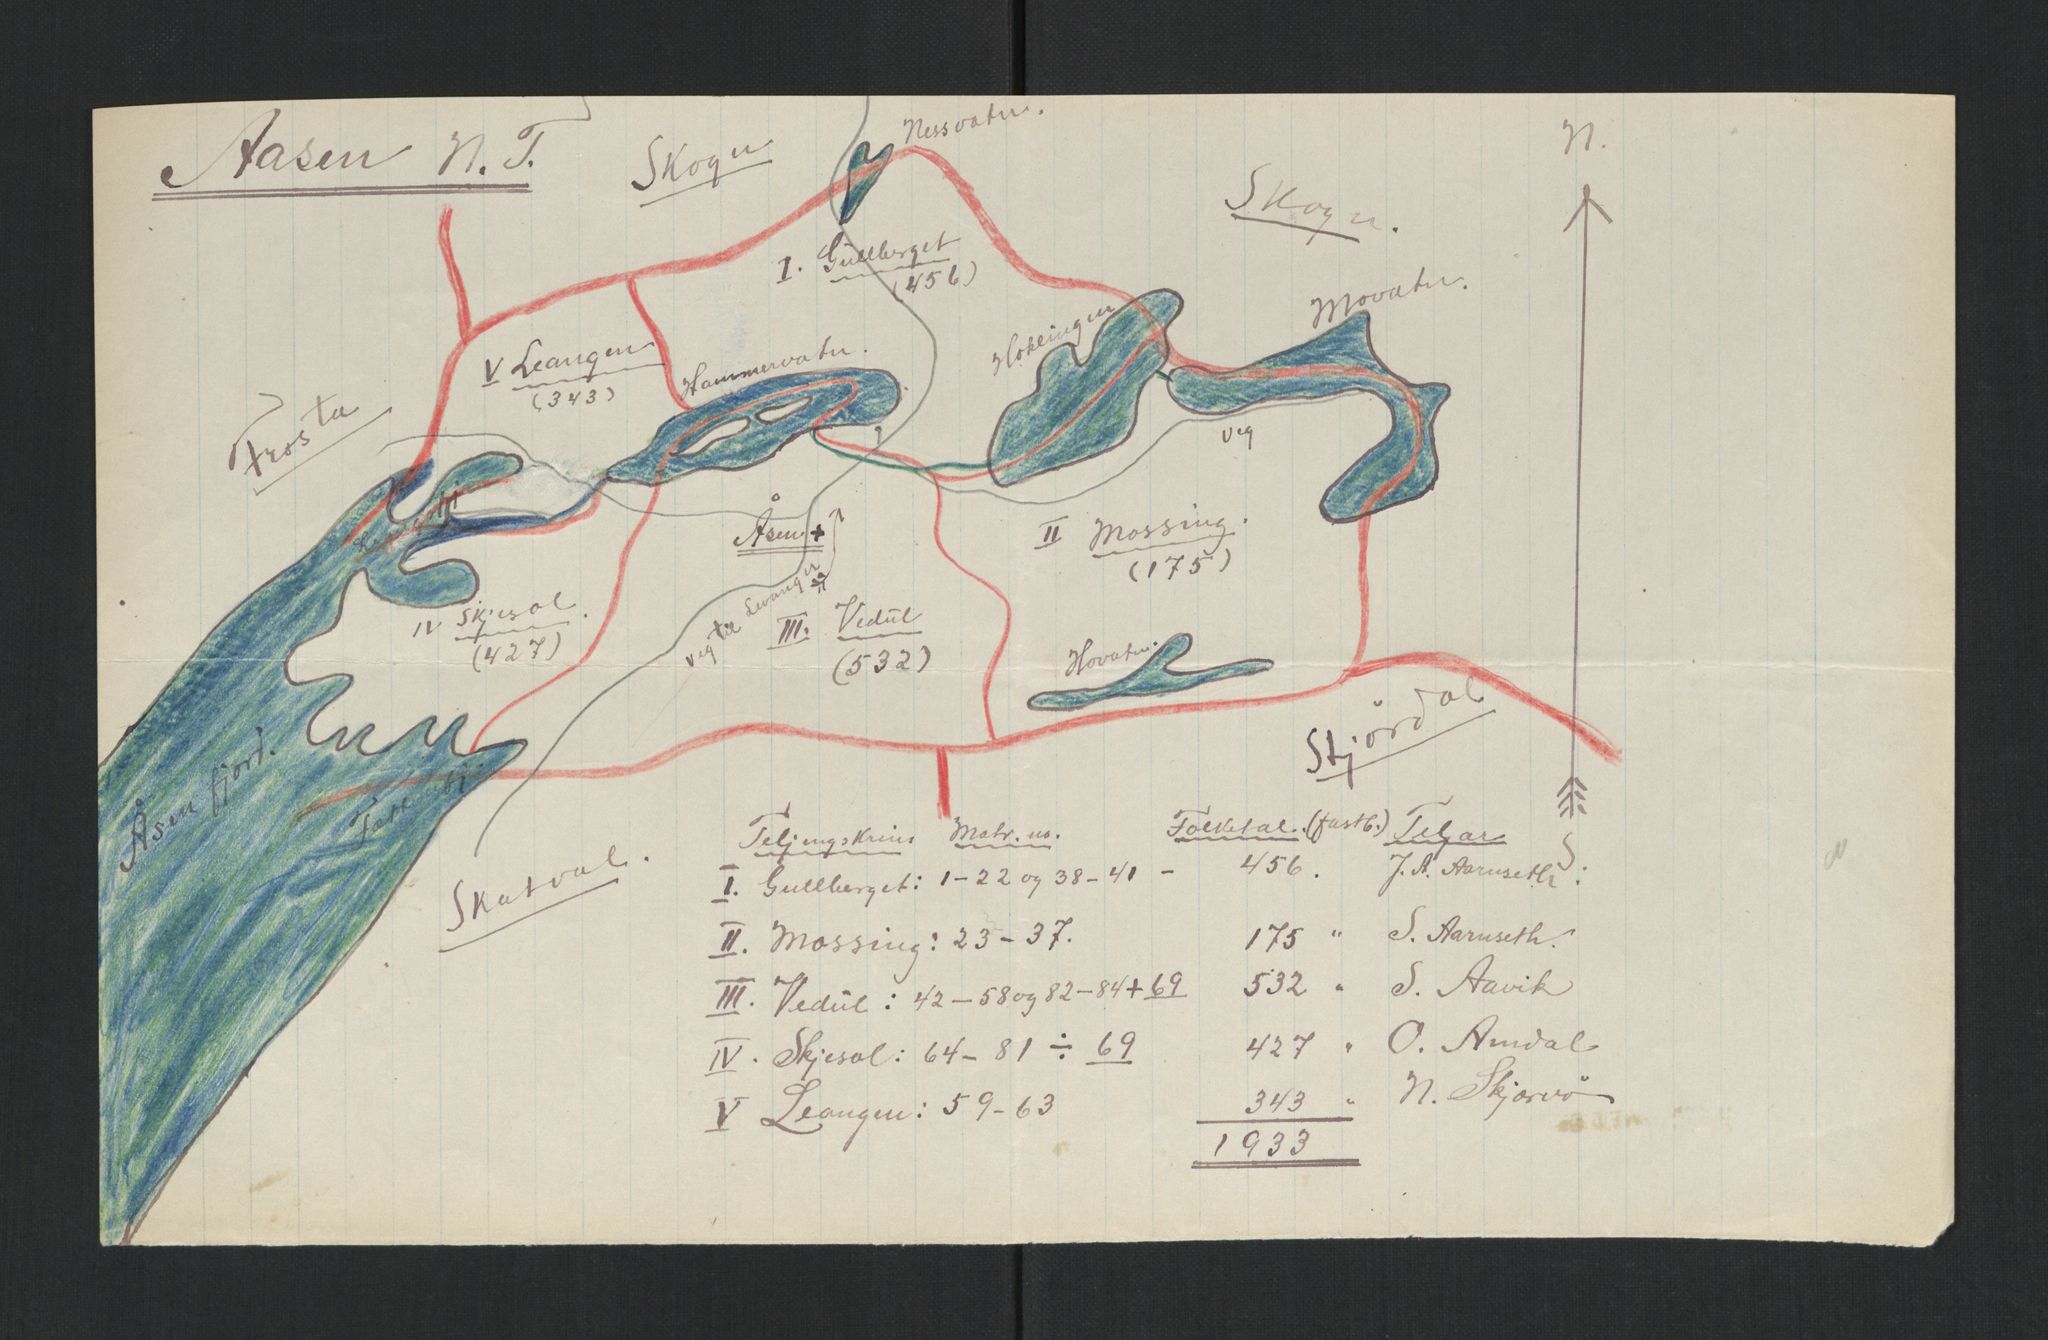 Aasen N. T.
Skogn
Nessvatn.
N.
Skogn.
I. Gullberget
(456)
Movatn.
Hoklingen
V Leangen
(343)
Hammervatn.
Frosta
veg
Åsen +
II Mossing.
(175)
veg til Levanger
IV Skjesol.
(427)
III. Vedul
(532)
Hovatn.
Stjördal
Åsenfjord.
Skatval.
S.
Teljingskrins Matr. no. Folketal. (fastb.) Teljar
I. Gullberget: 1-22 og 38-41 - 456. J. A. Aarnseth:
II. Mossing: 23-37. 175 " S. Aarnseth.
III. Vedul: 42-58 og 82-84 + 69 532 " S. Aavik
IV. Skjesol: 64-81 ÷ 69 427 " O. Amdal
V Leangen: 59-63 343 " N. Skjervö
1933